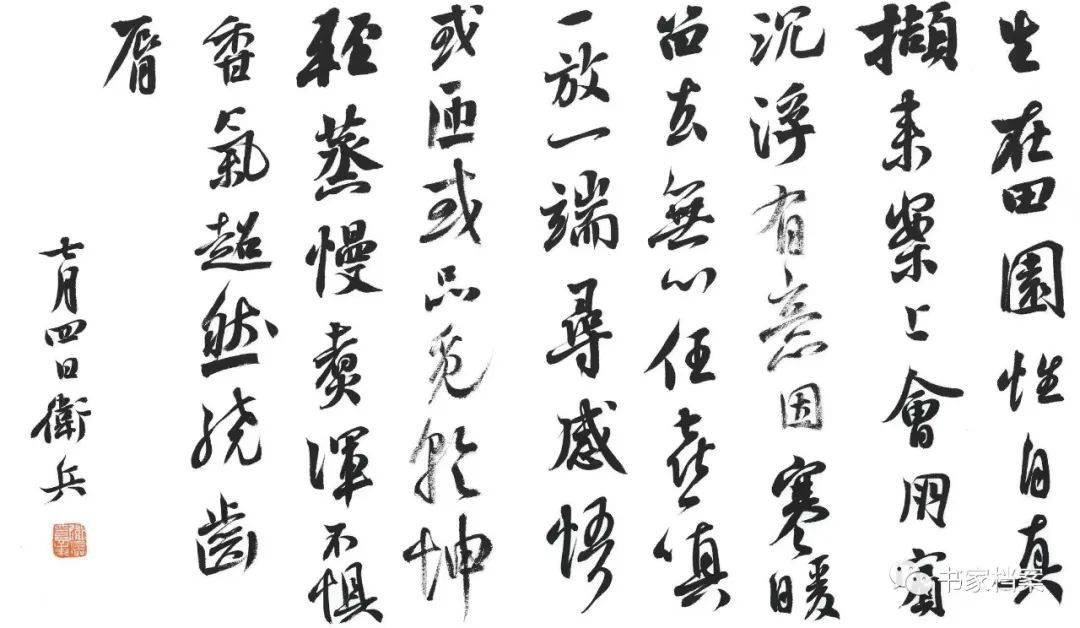 生在田園性自真
擷来案上會朋賓
沉浮有意因寒暖
留去無心任喜嗔
一放一端尋感悟
或或品覓乾坤
輕蒸慢煮渾不懼
香氣超然绕齒
脣
七月四日衛兵
书家档案